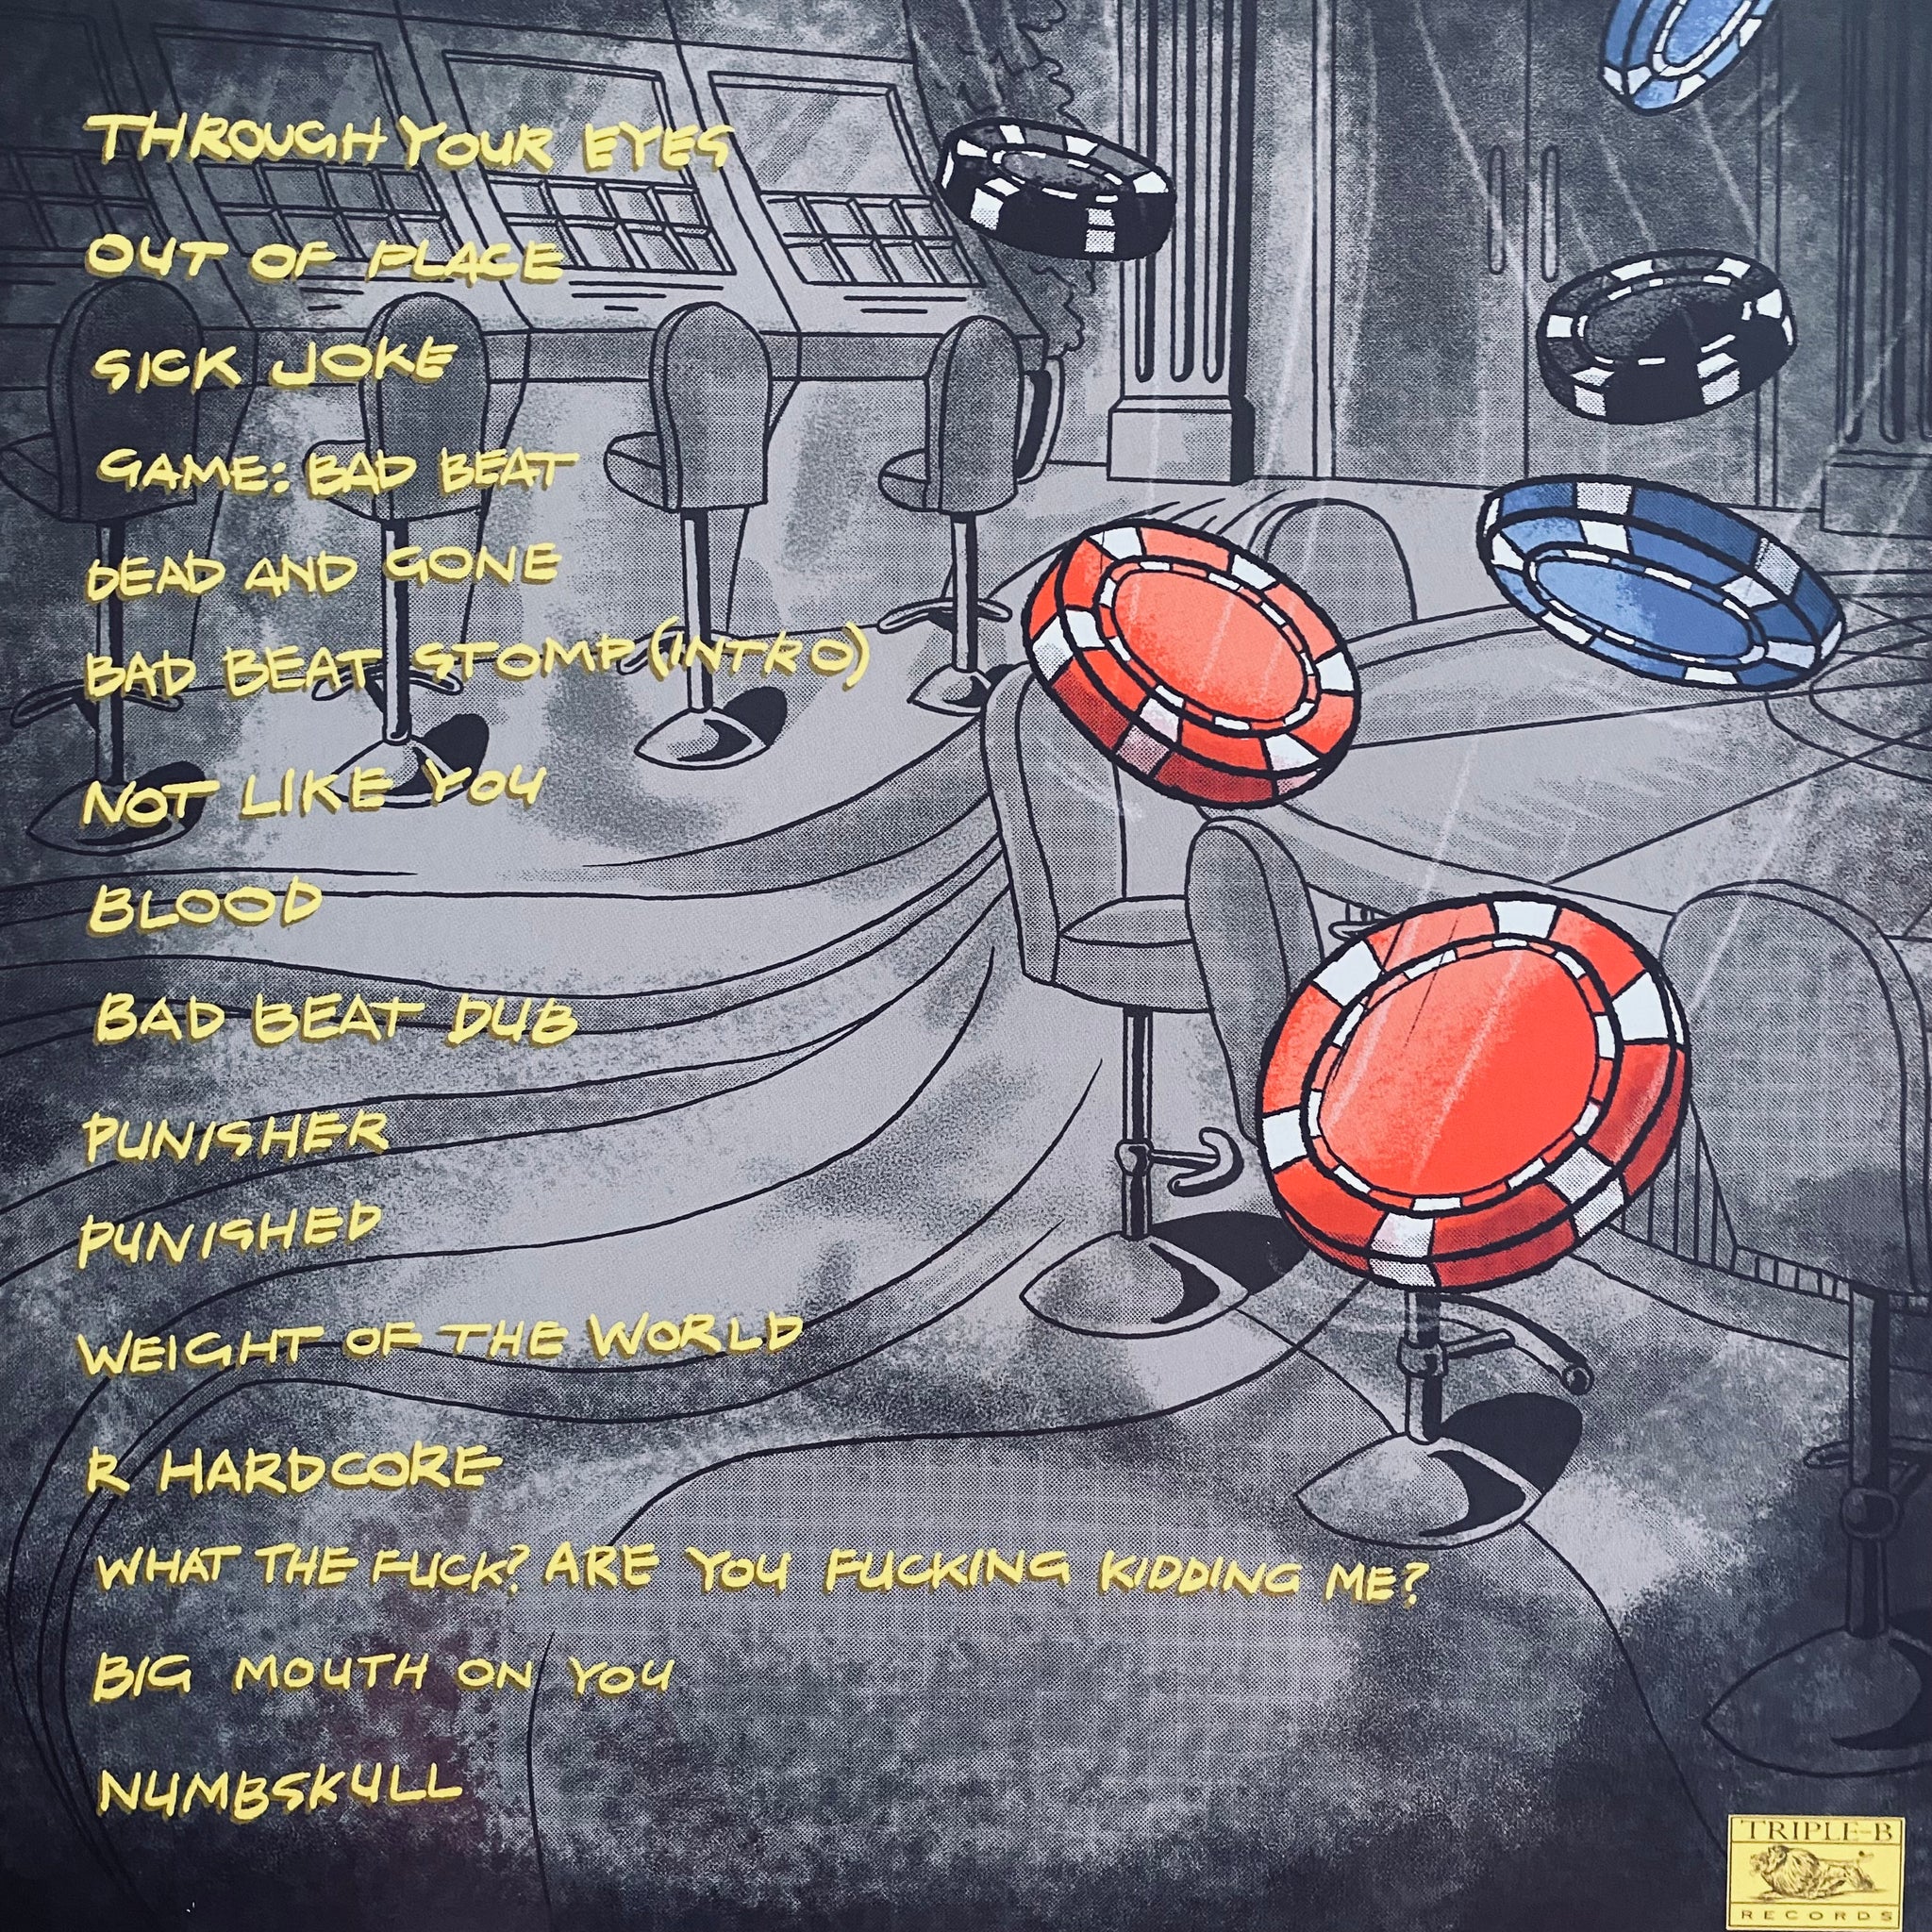 THROUGH YOUR EYES
OUT OF PLACE
SICK JOKE
GAME: BAD BEAT
DEAD AND GONE
BAD BEAT STOMP (INTRO)
NOT LIKE YOU
BLOOD
BAD BEAT DUB
PUNISHER
PUNISHED
WEIGHT OF THE WORLD
R HARDCORE
WHAT THE FUCK? ARE YOU FUCKING KIDDING ME?
BIG MOUTH ON YOU
NUMBSKULL
TRIPLE-B
RECORDS